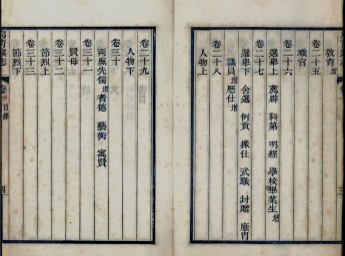 教育增
卷二十五
職官
卷二十六
選舉上 薦辟 科第 明經 學校畢業生增
卷二十七
選舉下 舍選 例貢 掾仕 武職 封贈 廕胄
議員增 歷仕增
卷二十八
人物上
卷二十九
人物下
卷三十
兩廡先儒增 耆德 藝術 寓賢
卷三十一
賢母
卷三十二
節烈上
卷三十三
節烈下
卷 目錄